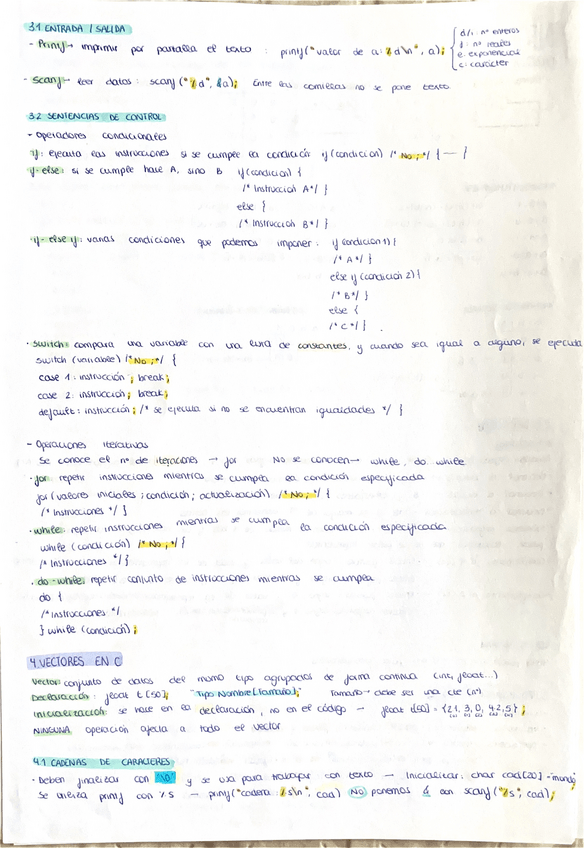 3.1 ENTRADA / SALIDA
- Printf → imprimir por pantalla el texto : printf("valor de a: %d\n", a);
d/i: nº enteros
f: nº reales
e: exponencial
c: carácter
- Scanf → leer datos : scanf("%d", &a); Entre las comillas no se pone texto
3.2 SENTENCIAS DE CONTROL
- Operadores condicionales
· if: ejecuta las instrucciones si se cumple la condición: if (condicion) /* No ; */ { — }
· if-else: si se cumple hace A, sino B if (condicion) {
/* Instrucción A */ }
else {
/* Instrucción B */ }
· if-else if: varias condiciones que podemos imponer: if (condicion 1) {
/* A */ }
else if (condicion 2) {
/* B */ }
else {
/* C */ }
· switch: compara una variable con una lista de constantes, y cuando sea igual a alguno, se ejecuta
switch (variable) /* No ; */ {
case 1: instrucción ; break;
case 2: instrucción; break;
default: instrucción; /* se ejecuta si no se encuentran igualdades */ }
- Operaciones iterativas
Se conoce el nº de iteraciones → for No se conocen → while, do while
· for: repetir instrucciones mientras se cumpla la condición especificada
for (valores iniciales ; condición ; actualización) /* No ; */ {
/* Instrucciones */ }
· while: repetir instrucciones mientras se cumpla la condición especificada
while (condición) /* No ; */ {
/* Instrucciones */ }
· do-while: repetir conjunto de instrucciones mientras se cumpla
do {
/* Instrucciones */
} while (condición);
4. VECTORES EN C
Vector: conjunto de datos del mismo tipo agrupados de forma continua (int, float...)
Declaración: float t[50]; "Tipo Nombre[Tamaño];" Tamaño → debe ser una cte (nº)
Inicialización: se hace en la declaración, no en el código → float t[50] = {21, 3, 0, 42, 5} ;
NINGUNA operación afecta a todo el vector
4.1 CADENAS DE CARACTERES
· Deben finalizar con '\0' y se usa para trabajar con texto → Inicializar: char cad[20] = "mundo"
Se utiliza printf con %s → printf("cadena: %s\n", cad) NO ponemos & con scanf("%s", cad);